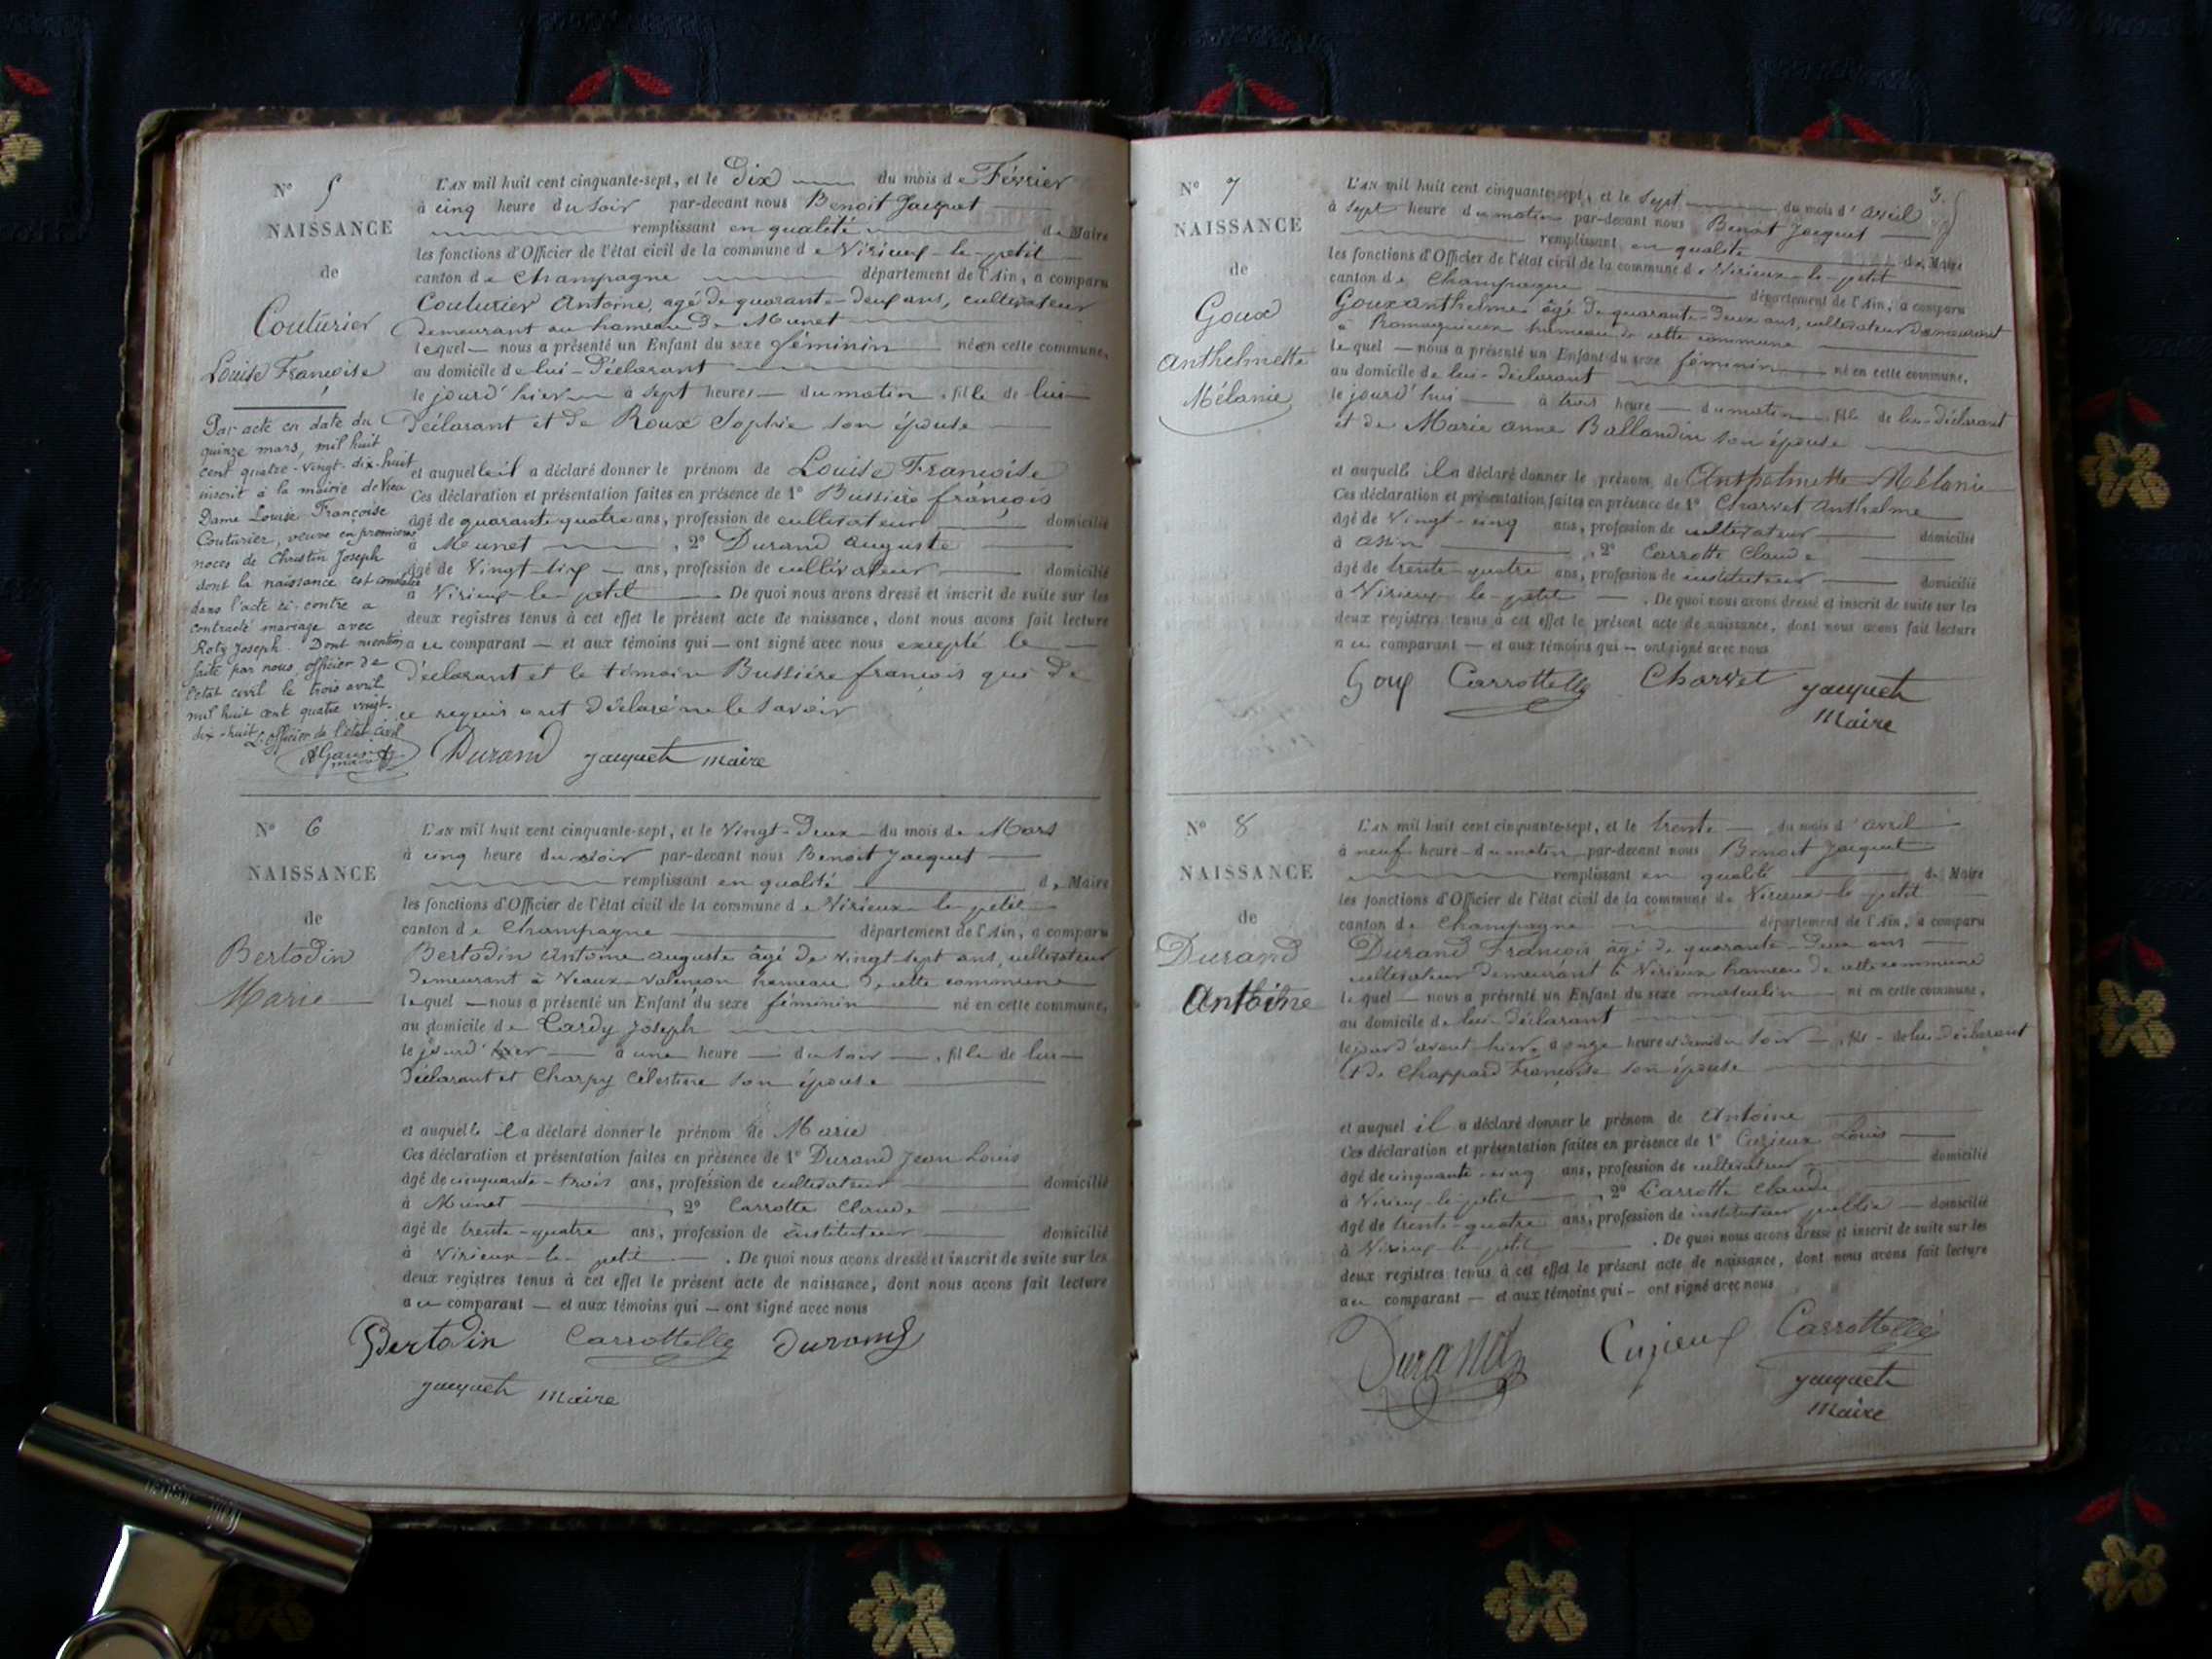 N° 5
NAISSANCE
de
Couturier
Louise Françoise
L'AN mil huit cent cinquante-sept, et le Dix du mois de Février
à cinq heure du soir par-devant nous Benoit Jacquet
remplissant en qualité de Maire
les fonctions d'Officier de l'état civil de la commune de Virieux-le-petit
canton de Champagne département de l'Ain, a comparu
Couturier Antoine, agé de quarante-deux ans, cultivateur
demeurant au hameau de Munet
lequel nous a présenté un Enfant du sexe féminin né en cette commune,
au domicile de lui-Déclarant
le jourd'hier à sept heures du matin, fille de lui
Déclarant et de Roux Sophie son épouse
et auquelle il a déclaré donner le prénom de Louise Françoise
Ces déclaration et présentation faites en présence de 1° Bussière françois
âgé de quarante quatre ans, profession de cultivateur domicilié
à Munet, 2° Durand Auguste
âgé de Vingt-six ans, profession de cultivateur domicilié
à Virieux-le-petit. De quoi nous avons dressé et inscrit de suite sur les
deux registres tenus à cet effet le présent acte de naissance, dont nous avons fait lecture
au comparant et aux témoins qui ont signé avec nous excepté le
déclarant et le témoin Bussière françois qui de
ce requis ont Déclaré ne le savoir
Durand Jacquet maire
Par acte en date du
quinze mars, mil huit
cent quatre-vingt-dix-huit
inscrit à la mairie de Vieu
Dame Louise Françoise
Couturier, veuve en premières
noces de Christin Joseph
dont la naissance est constatée
dans l'acte ci-contre a
contracté mariage avec
Roty Joseph. Dont mention
faite par nous officier de
l'état civil le trois avril
mil huit cent quatre vingt-
dix-huit L'officier de l'état civil
N° 6
NAISSANCE
de
Bertodin
Marie
L'AN mil huit cent cinquante-sept, et le Vingt-Deux du mois de Mars
à cinq heure du soir par-devant nous Benoit Jacquet
remplissant en qualité de Maire
les fonctions d'Officier de l'état civil de la commune de Virieux-le-petit
canton de Champagne département de l'Ain, a comparu
Bertodin Antoine auguste âgé de vingt-sept ans, cultivateur
demeurant à hameau de cette commune
lequel nous a présenté un Enfant du sexe féminin né en cette commune,
au domicile de Cardy Joseph
le jourd'hier à une heure du soir, fille de lui
Déclarant et Charpy Célestine son épouse
et auquelle il a déclaré donner le prénom de Marie
Ces déclaration et présentation faites en présence de 1° Durand Jean Louis
âgé de cinquante-trois ans, profession de cultivateur domicilié
à Munet, 2° Carrotte Claude
âgé de trente-quatre ans, profession de instituteur domicilié
à Virieux-le-petit. De quoi nous avons dressé et inscrit de suite sur les
deux registres tenus à cet effet le présent acte de naissance, dont nous avons fait lecture
au comparant et aux témoins qui ont signé avec nous
Bertodin Carrotte Durand
Jacquet maire
3.
N° 7
NAISSANCE
de
Goux
Anthelmette
Mélanie
L'AN mil huit cent cinquante-sept, et le sept du mois d'avril
à sept heure du matin par-devant nous Benoit Jacquet
remplissant en qualité de Maire
les fonctions d'Officier de l'état civil de la commune de Virieux-le-petit
canton de Champagne département de l'Ain, a comparu
Goux anthelme âgé de quarante-deux ans, cultivateur demeurant
à Romagnieux hameau de cette commune
lequel nous a présenté un Enfant du sexe féminin né en cette commune,
au domicile de lui-déclarant
le jourd'hui à trois heure du matin, fille de lui-déclarant
et de Marie anne Ballandin son épouse
et auquelle il a déclaré donner le prénom de Anthelmette Mélanie
Ces déclaration et présentation faites en présence de 1° Charvet Anthelme
âgé de Vingt-cinq ans, profession de cultivateur domicilié
à Assin, 2° Carrotte Claude
âgé de trente-quatre ans, profession de instituteur domicilié
à Virieux-le-petit. De quoi nous avons dressé et inscrit de suite sur les
deux registres tenus à cet effet le présent acte de naissance, dont nous avons fait lecture
au comparant et aux témoins qui ont signé avec nous
Goux Carrotte Charvet Jacquet
maire
N° 8
NAISSANCE
de
Durand
Antoine
L'AN mil huit cent cinquante-sept, et le trente du mois d'avril
à neuf heure du matin par-devant nous Benoit Jacquet
remplissant en qualité de Maire
les fonctions d'Officier de l'état civil de la commune de Virieux-le-petit
canton de Champagne département de l'Ain, a comparu
Durand François âgé de quarante-deux ans
cultivateur demeurant à Virieux hameau de cette commune
lequel nous a présenté un Enfant du sexe masculin né en cette commune,
au domicile de lui-Déclarant
le jour d'avant hier à onze heure et demi du soir, fils de lui Déclarant
et de Chappard Françoise son épouse
et auquel il a déclaré donner le prénom de Antoine
Ces déclaration et présentation faites en présence de 1° Cuzieux Louis
âgé de cinquante-cinq ans, profession de cultivateur domicilié
à Virieux-le-petit, 2° Carrotte Claude
âgé de trente-quatre ans, profession de instituteur public domicilié
à Virieux-le-petit. De quoi nous avons dressé et inscrit de suite sur les
deux registres tenus à cet effet le présent acte de naissance, dont nous avons fait lecture
au comparant et aux témoins qui ont signé avec nous
Durand Cuzieux Carrotte
Jacquet
maire